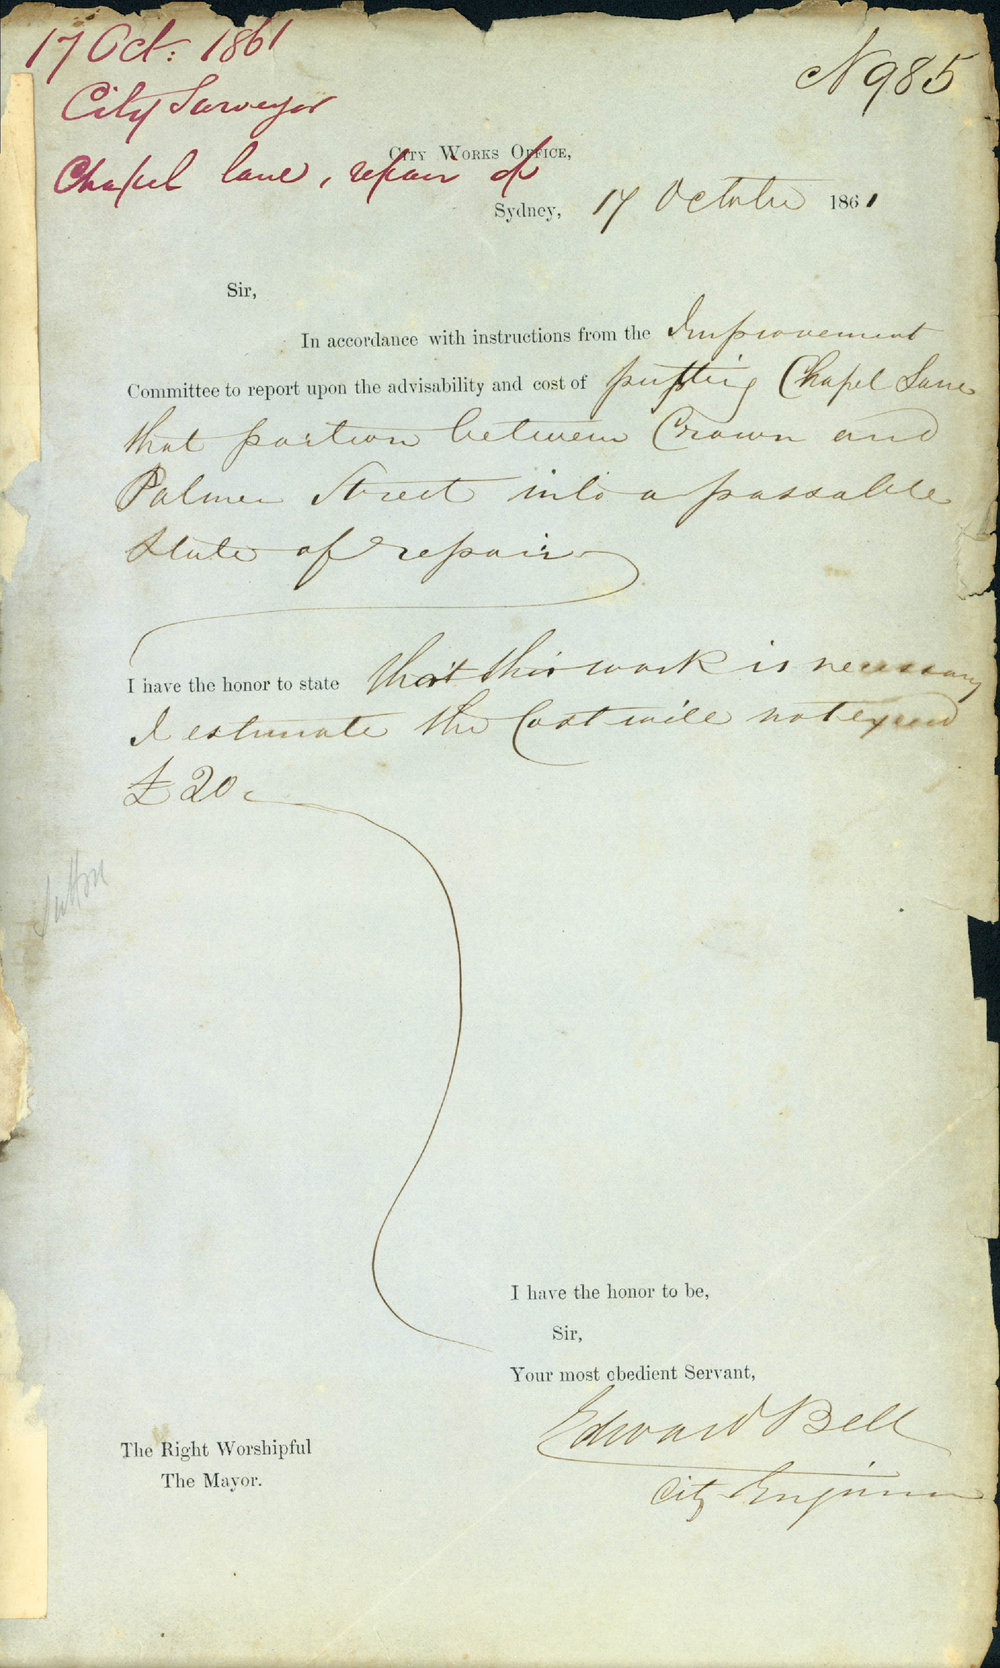 17 Oct: 1861
City Surveyor
Chapel lane, repair of
No 985
City Works Office,
Sydney, 17 October 1861
Sir,
In accordance with instructions from the Improvement
Committee to report upon the advisability and cost of putting Chapel Lane
that portion between Crown and
Palmer Street into a passable
state of repair
I have the honor to state that this work is necessary
I estimate the Cost will not exceed
£20.
Sutton
I have the honor to be,
Sir,
Your most obedient Servant,
Edward Bell
City Engineer
The Right Worshipful
The Mayor.